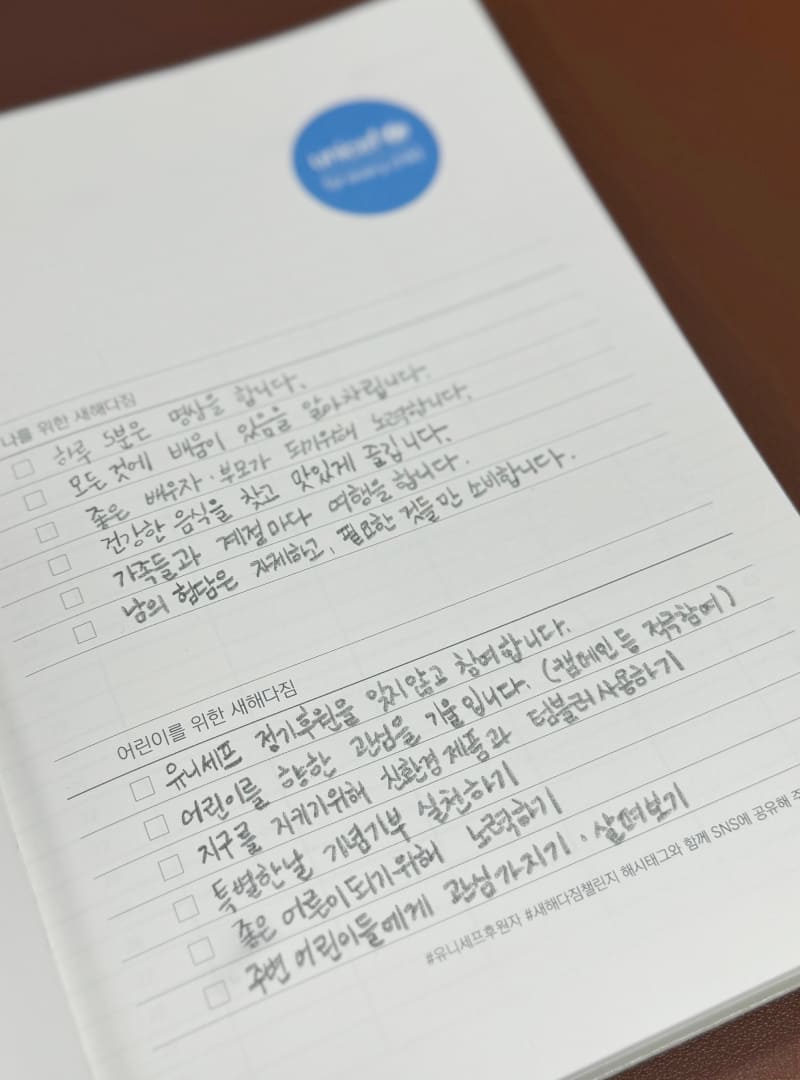 unicef
for every child
나를 위한 새해다짐
하루 5분은 명상을 합니다.
모든 것에 배움이 있음을 알아차립니다.
좋은 배우자·부모가 되기위해 노력합니다.
건강한 음식을 찾고 맛있게 즐깁니다.
가족들과 계절마다 여행을 합니다.
남의 험담은 자제하고, 필요한 것들만 소비합니다.
어린이를 위한 새해다짐
유니세프 정기후원을 잊지않고 참여합니다.
어린이를 향한 관심을 기울입니다. (캠페인 등 적극참여)
지구를 지키기위해 친환경제품과 텀블러사용하기
특별한날 기념기부 실천하기
좋은 어른이되기위해 노력하기
주변 어린이들에게 관심가지기·살펴보기
#유니세프후원자 #새해다짐챌린지 해시태그와 함께 SNS에 공유해 주